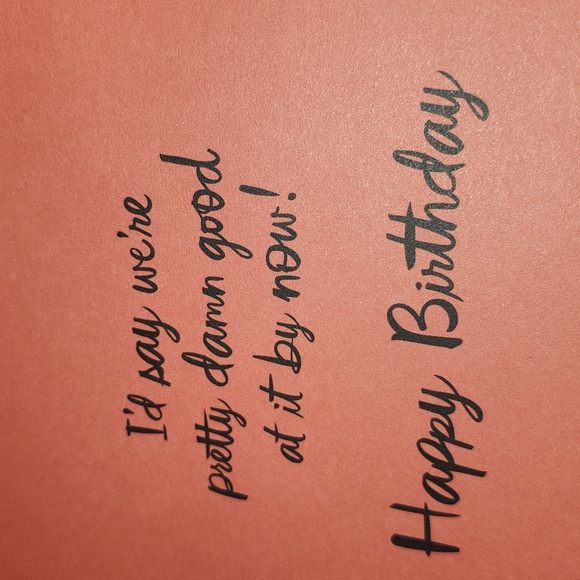 I'd say we're
pretty damn good
at it by now!
Happy Birthday